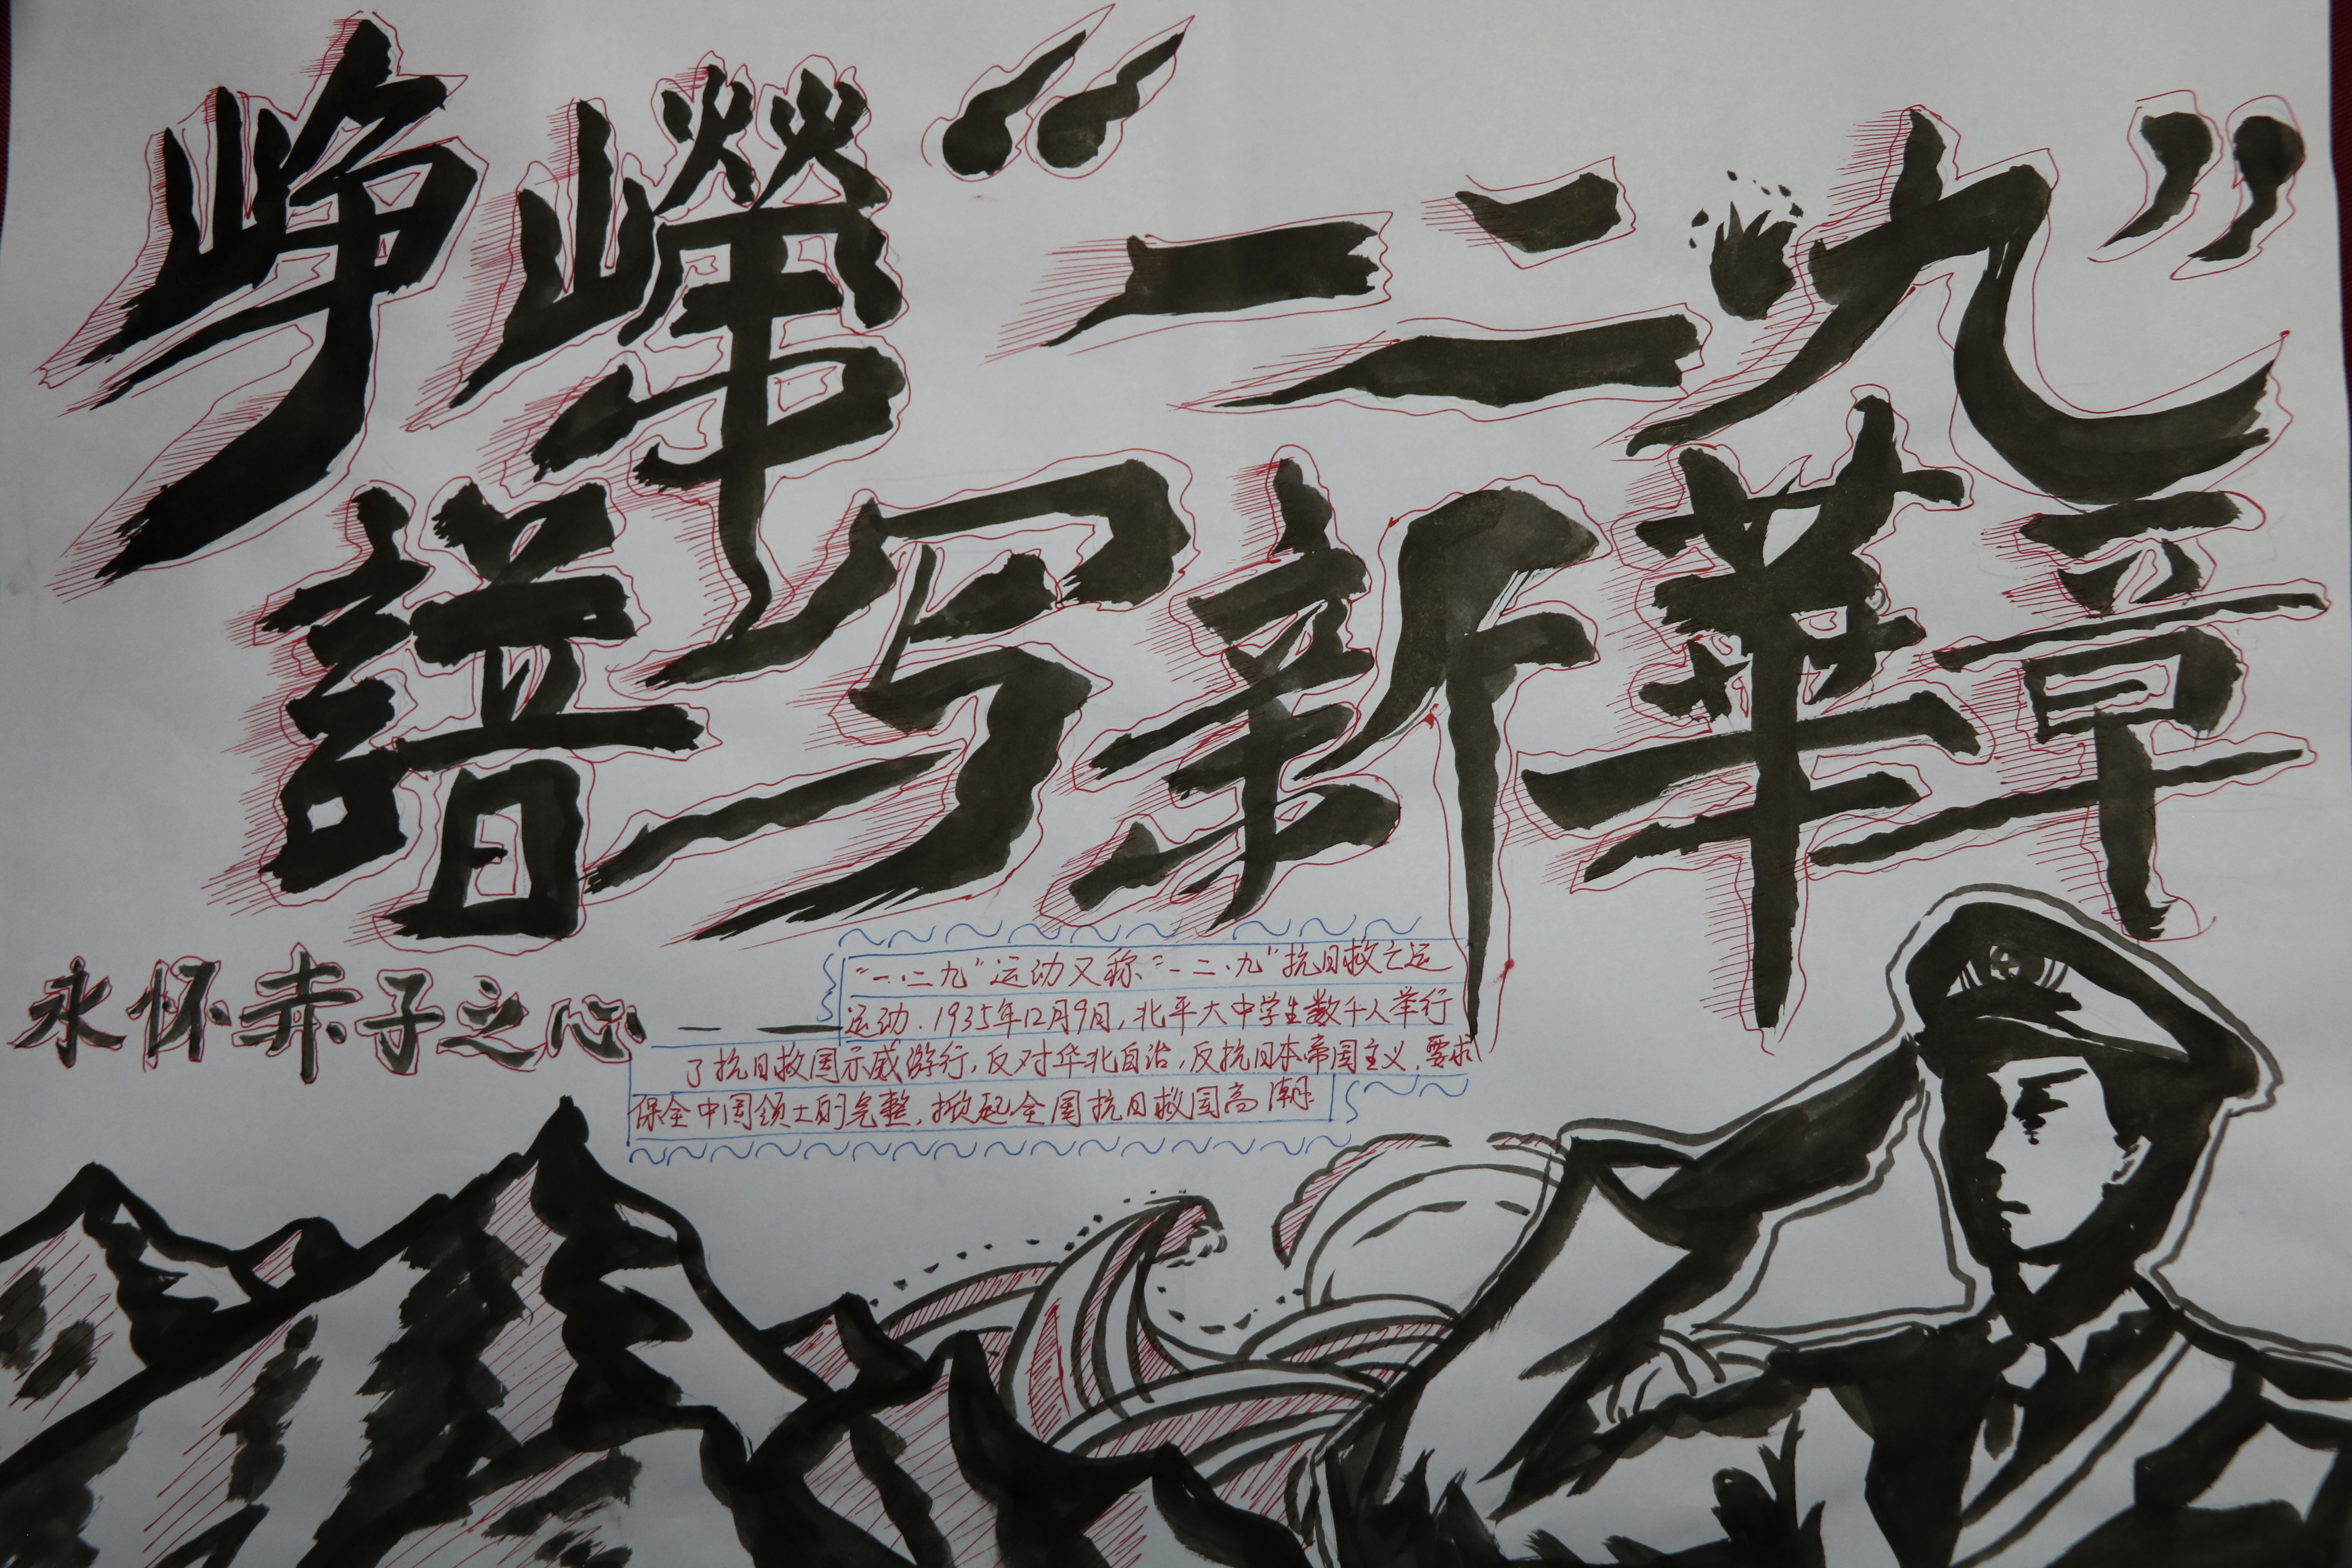 峥嶸“一二九”
譜写新華章
永怀赤子之心——
“一·二九”运动又称“一二·九”抗日救亡运
运动.1935年12月9日,北平大中学生数千人举行
了抗日救国示威游行,反对华北自治,反抗日本帝国主义,要求
保全中国领土的完整,掀起全国抗日救国高潮.